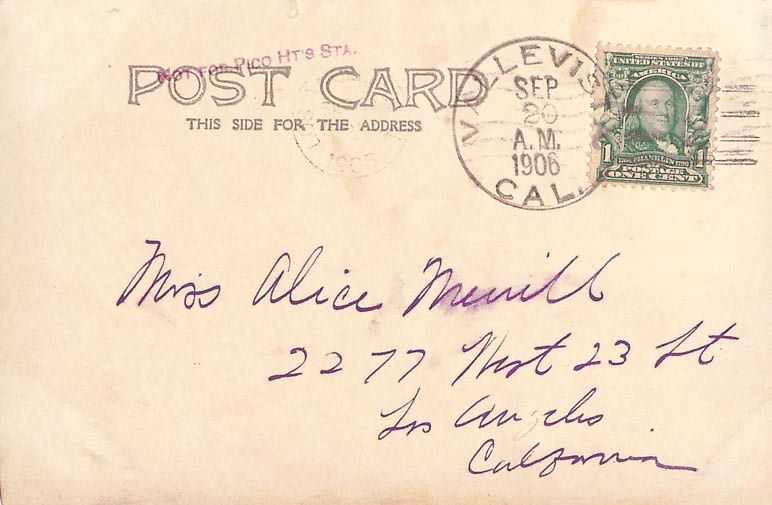 NOT FOR PICO HT'S STA.
POST CARD
THIS SIDE FOR THE ADDRESS
VALLEVISTA
SEP
20
A.M.
1906
CAL.
SERIES 1902
UNITED STATES OF
AMERICA
1 1
1706 FRANKLIN 1790
POSTAGE
ONE CENT
1906
Miss Alice Merrill
2277 West 23 St
Los Angeles
California